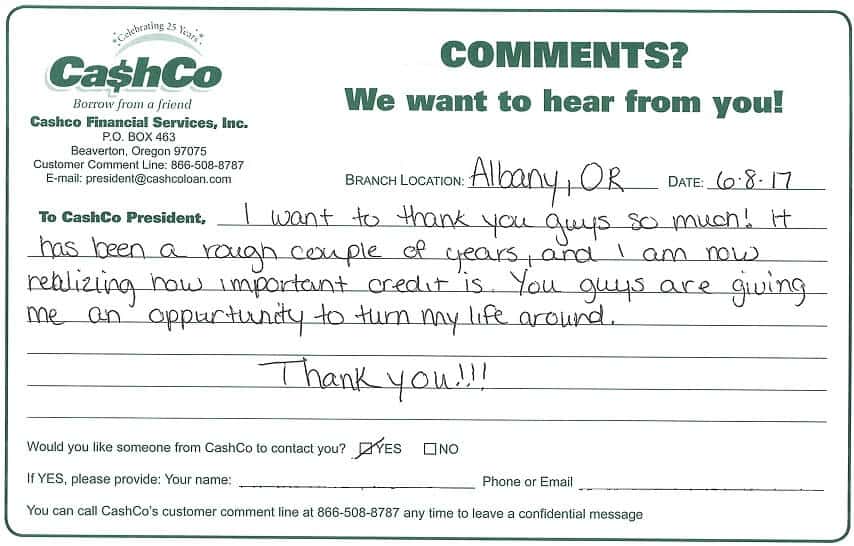 Celebrating 25 Years
Ca$hCo
Borrow from a friend
Cashco Financial Services, Inc.
P.O. BOX 463
Beaverton, Oregon 97075
Customer Comment Line: 866-508-8787
E-mail: president@cashcoloan.com
COMMENTS?
We want to hear from you!
BRANCH LOCATION: Albany, OR DATE: 6·8·17
To CashCo President, I want to thank you guys so much! it
has been a rough couple of years, and I am now
realizing how important credit is. You guys are giving
me an oppurtunity to turn my life around.
Thank you!!!
Would you like someone from CashCo to contact you? YES NO
If YES, please provide: Your name: Phone or Email
You can call CashCo's customer comment line at 866-508-8787 any time to leave a confidential message